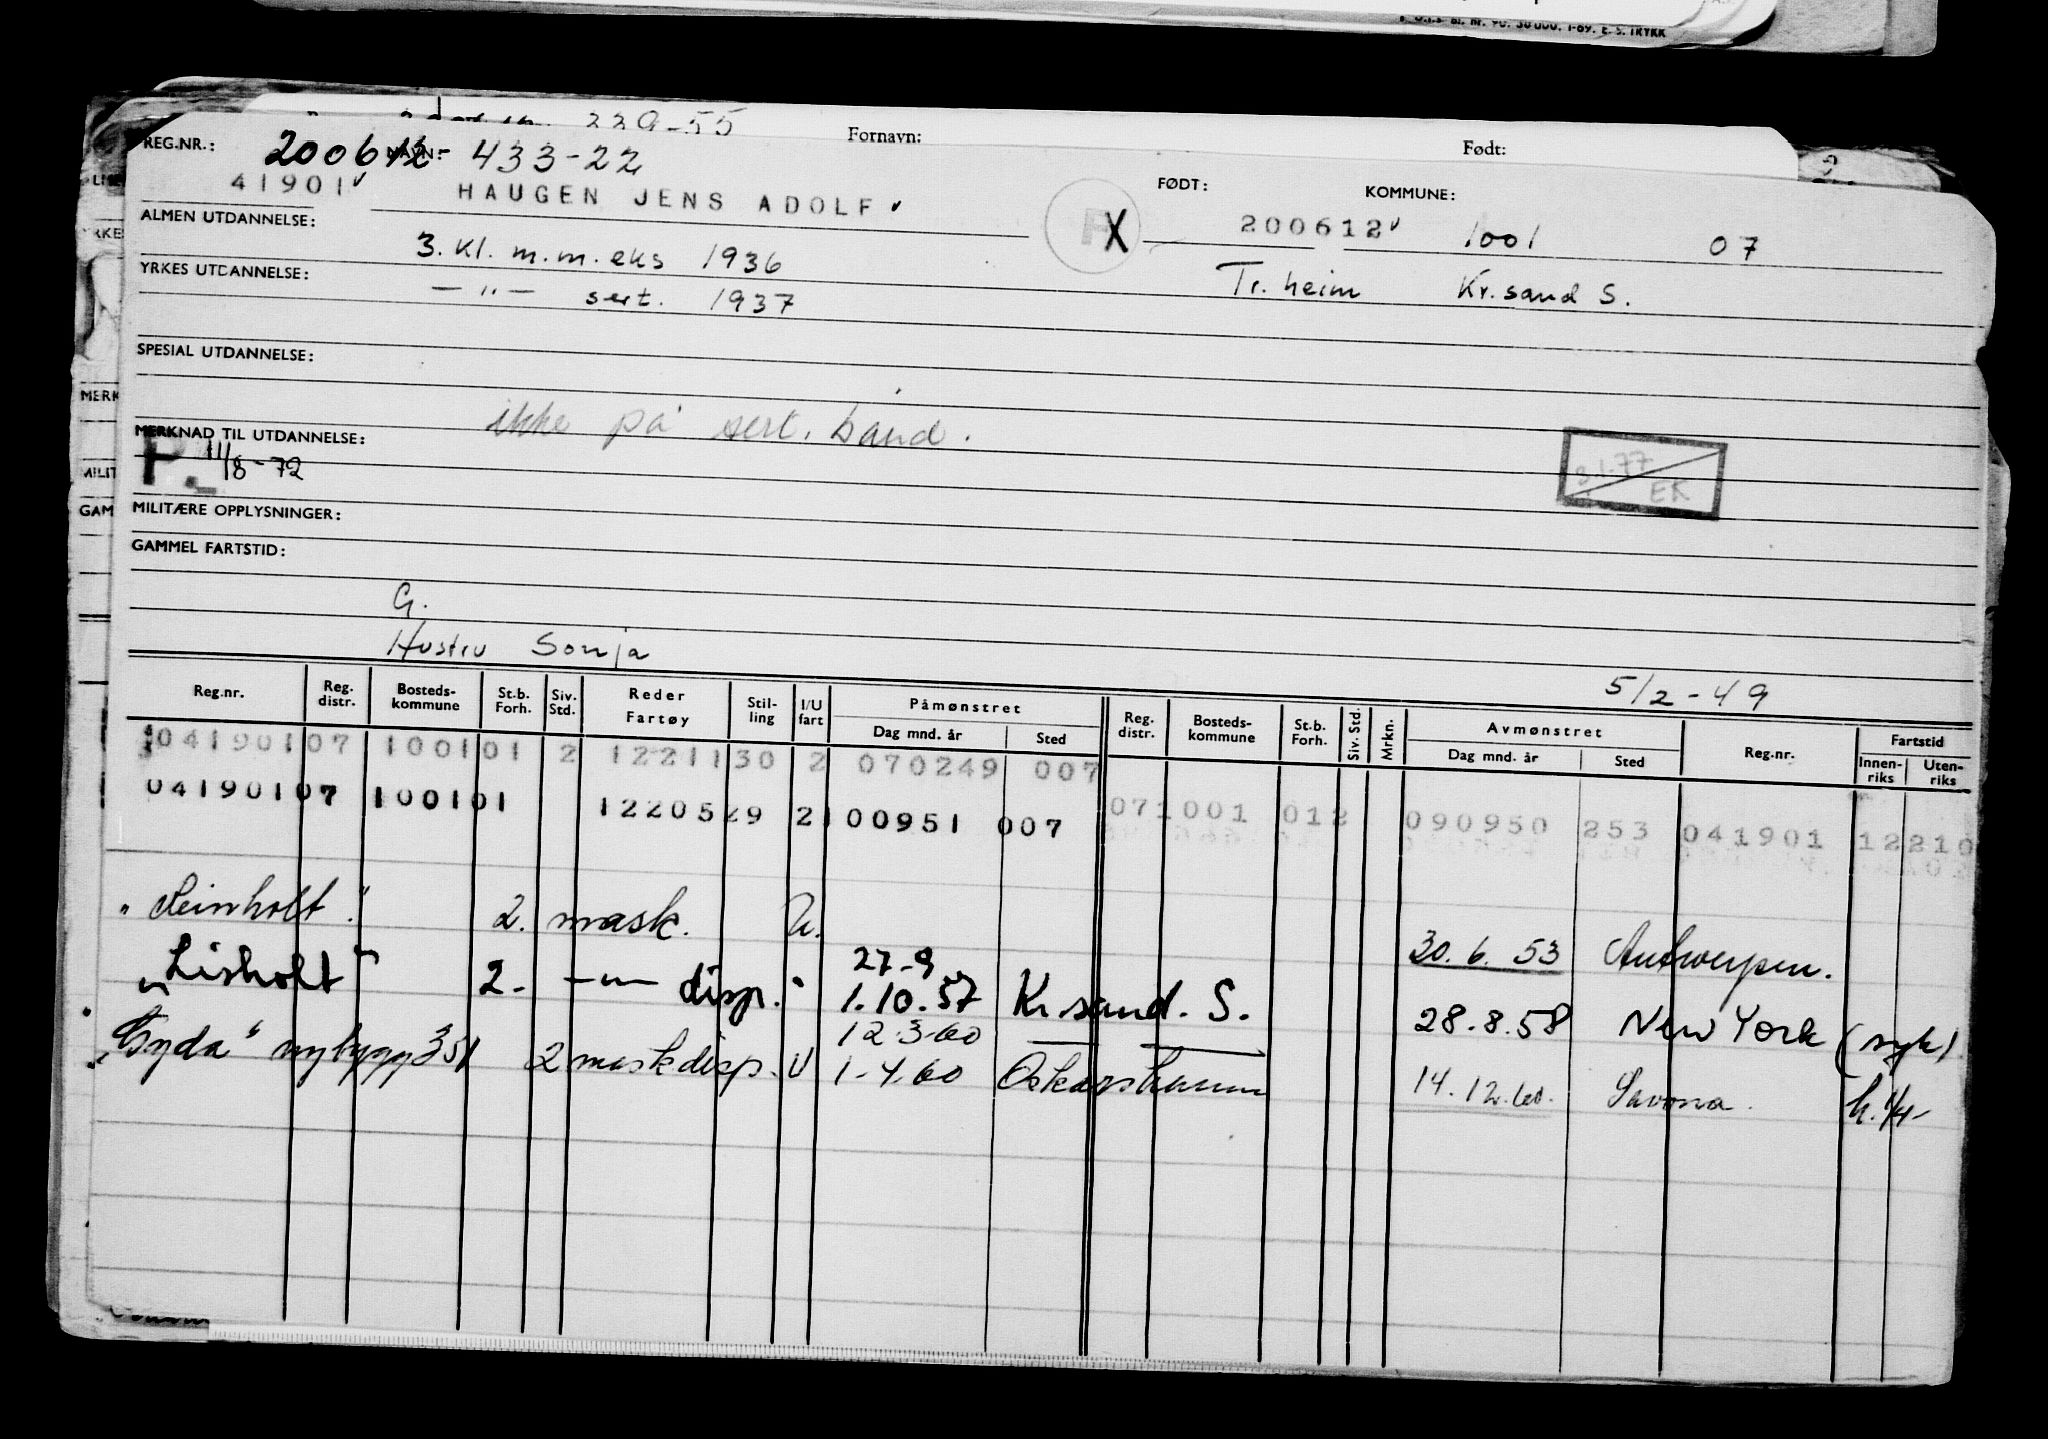 BL. Nr. 90. 50 000. 1-69. E. S. TRYKK
229-55
Fornavn: Født:
REG.NR.: 200612- NAVN: 433-22
41901 HAUGEN JENS ADOLF FØDT: 200612 KOMMUNE: 1001 07
ALMEN UTDANNELSE: 3. kl. m.m. eks 1936 Tr.heim Kr.sand S.
YRKES UTDANNELSE: — " — sert. 1937
SPESIAL UTDANNELSE:
ikke på sert. bånd.
MERKNAD TIL UTDANNELSE:
P. 11/8-72
3.1.77 EK
MILITÆRE OPPLYSNINGER:
GAMMEL FARTSTID:
G.
Hustru Sonja
5/2-49
Reg.nr. Reg. distr. Bosteds-kommune St.b. Forh. Siv. Std. Reder Fartøy Stil-ling I/U fart Påmønstret Dag mnd. år Sted Reg. distr. Bosteds-kommune St.b. Forh. Siv. Std. Mrkn. Avmønstret Dag mnd. år Sted Reg.nr. Fartstid Innen-riks Uten-riks
041901 07 1001 01 2 12211 30 2 070249 007
041901 07 1001 01 12205 29 2 100951 007 07 1001 012 090950 253 041901 12210
2. mask. U. 30.6.53 Antwerpen.
"Lisholt" 2. — " — disp. " 27-9 1.10.57 Kr.sand. S. 28.8.58 New York (syk)
"Gyda" nybygg 351 2 mask disp. U 12.3.60 1-4.60 Oskarshamn 14.12.60. Savona.